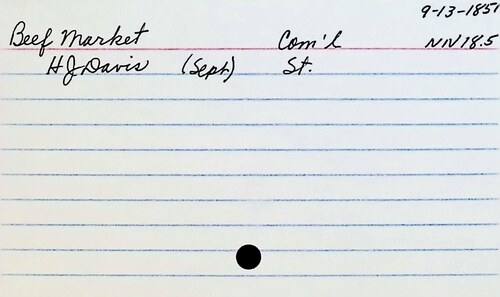 9-13-1851
Beef Market Com'l NN18.5
H J Davis (Seph) St.